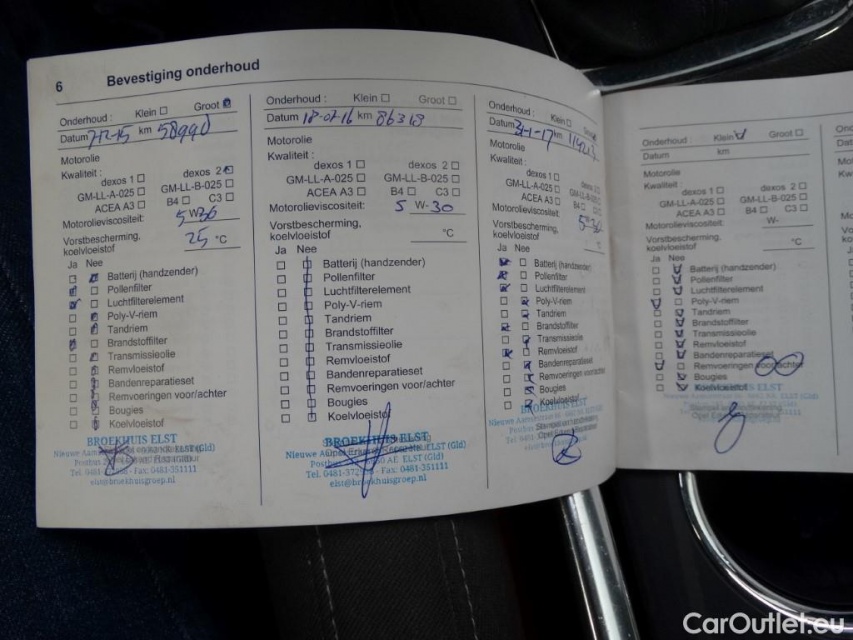 6 Bevestiging onderhoud
Onderhoud : Klein ☐ Groot ☒
Datum 7-12-15 km 58990
Motorolie
Kwaliteit :
dexos 1 ☐ dexos 2 ☒
GM-LL-A-025 ☐ GM-LL-B-025 ☐
ACEA A3 ☐ B4 ☐ C3 ☐
Motorolieviscositeit: 5 W- 30
Vorstbescherming,
koelvloeistof 25 °C
Ja Nee
Batterij (handzender)
Pollenfilter
Luchtfilterelement
Poly-V-riem
Tandriem
Brandstoffilter
Transmissieolie
Remvloeistof
Bandenreparatieset
Remvoeringen voor/achter
Bougies
Koelvloeistof
BROEKHUIS ELST
Onderhoud : Klein ☐ Groot ☐
Datum 18-07-16 km 86318
Motorolie
Kwaliteit :
dexos 1 ☐ dexos 2 ☐
GM-LL-A-025 ☐ GM-LL-B-025 ☐
ACEA A3 ☐ B4 ☐ C3 ☐
Motorolieviscositeit: 5 W- 30
Vorstbescherming,
koelvloeistof °C
Ja Nee
Batterij (handzender)
Pollenfilter
Luchtfilterelement
Poly-V-riem
Tandriem
Brandstoffilter
Transmissieolie
Remvloeistof
Bandenreparatieset
Remvoeringen voor/achter
Bougies
Koelvloeistof
BROEKHUIS ELST
Nieuwe ELST (Gld)
ELST (Gld)
Fax: 0481-351111
elst@broekhuisgroep.nl
Onderhoud : Klein ☐
Datum km
Motorolie
Kwaliteit :
dexos 1 ☐ dexos 2 ☐
GM-LL-A-025 ☐ GM-LL-B-025
ACEA A3 ☐ B4 ☐ C3 ☐
Motorolieviscositeit:
Vorstbescherming,
koelvloeistof °C
Ja Nee
Batterij (handzender)
Pollenfilter
Luchtfilterelement
Poly-V-riem
Tandriem
Brandstoffilter
Transmissieolie
Remvloeistof
Bandenreparatieset
Remvoeringen voor/achter
Bougies
Koelvloeistof
BROEKHUIS ELST
Onderhoud : Klein ☑ Groot ☐
Datum km
Motorolie
Kwaliteit :
dexos 1 ☐ dexos 2 ☐
GM-LL-A-025 ☐ GM-LL-B-025 ☐
ACEA A3 ☐ B4 ☐ C3 ☐
Motorolieviscositeit: W-
Vorstbescherming,
koelvloeistof °C
Ja Nee
Batterij (handzender)
Pollenfilter
Luchtfilterelement
Poly-V-riem
Tandriem
Brandstoffilter
Transmissieolie
Remvloeistof
Bandenreparatieset
Remvoeringen voor/achter
Bougies
Koelvloeistof
CarOutlet.eu